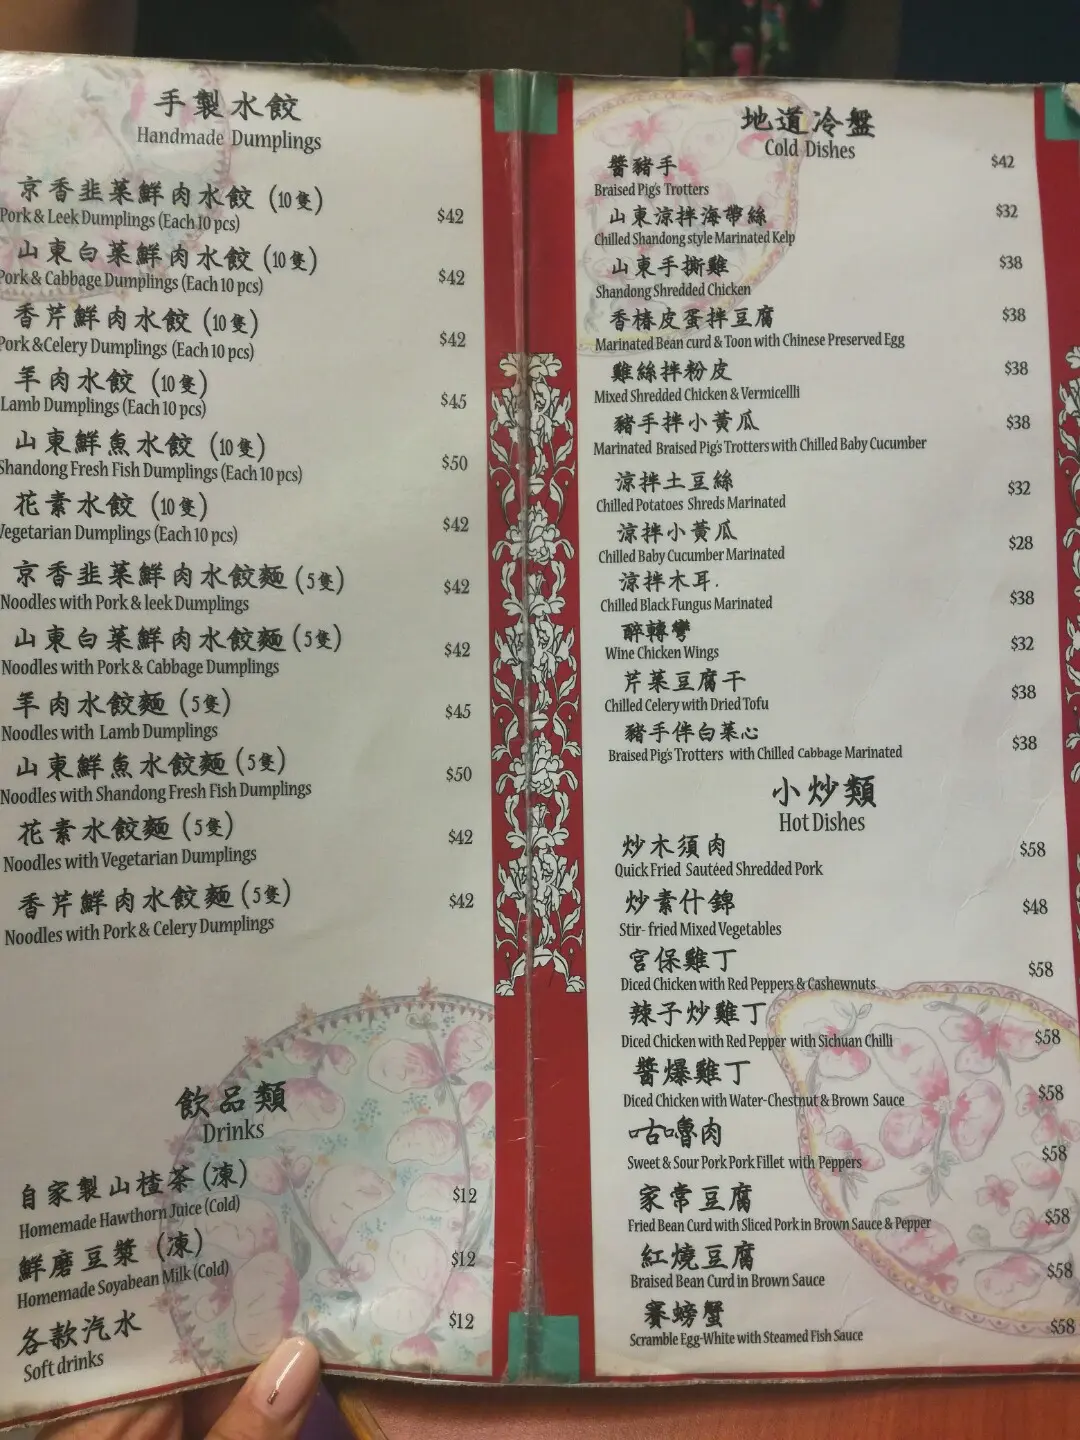 手製水餃
Handmade Dumplings
京香韭菜鮮肉水餃 (10隻)
Pork & Leek Dumplings (Each 10 pcs) $42
山東白菜鮮肉水餃 (10隻)
Pork & Cabbage Dumplings (Each 10 pcs) $42
香芹鮮肉水餃 (10隻)
Pork &Celery Dumplings (Each 10 pcs) $42
羊肉水餃 (10隻)
Lamb Dumplings (Each 10 pcs) $45
山東鮮魚水餃 (10隻)
Shandong Fresh Fish Dumplings (Each 10 pcs) $50
花素水餃 (10隻)
Vegetarian Dumplings (Each 10 pcs) $42
京香韭菜鮮肉水餃麵 (5隻)
Noodles with Pork & leek Dumplings $42
山東白菜鮮肉水餃麵 (5隻)
Noodles with Pork & Cabbage Dumplings $42
羊肉水餃麵 (5隻)
Noodles with Lamb Dumplings $45
山東鮮魚水餃麵 (5隻)
Noodles with Shandong Fresh Fish Dumplings $50
花素水餃麵 (5隻)
Noodles with Vegetarian Dumplings $42
香芹鮮肉水餃麵 (5隻)
Noodles with Pork & Celery Dumplings $42
飲品類
Drinks
自家製山楂茶 (凍)
Homemade Hawthorn Juice (Cold) $12
鮮磨豆漿 (凍)
Homemade Soyabean Milk (Cold) $12
各款汽水
Soft drinks $12
地道冷盤
Cold Dishes
醬豬手 $42
Braised Pig's Trotters
山東涼拌海帶絲 $32
Chilled Shandong style Marinated Kelp
山東手撕雞 $38
Shandong Shredded Chicken
香椿皮蛋拌豆腐 $38
Marinated Bean curd & Toon with Chinese Preserved Egg
雞絲拌粉皮 $38
Mixed Shredded Chicken & Vermicellli
豬手拌小黃瓜 $38
Marinated Braised Pig's Trotters with Chilled Baby Cucumber
涼拌土豆絲 $32
Chilled Potatoes Shreds Marinated
涼拌小黃瓜 $28
Chilled Baby Cucumber Marinated
涼拌木耳. $38
Chilled Black Fungus Marinated
醉轉彎 $32
Wine Chicken Wings
芹菜豆腐干 $38
Chilled Celery with Dried Tofu
豬手伴白菜心 $38
Braised Pig's Trotters with Chilled Cabbage Marinated
小炒類
Hot Dishes
炒木須肉 $58
Quick Fried Sautéed Shredded Pork
炒素什錦 $48
Stir- fried Mixed Vegetables
宮保雞丁 $58
Diced Chicken with Red Peppers & Cashewnuts
辣子炒雞丁 $58
Diced Chicken with Red Pepper with Sichuan Chilli
醬爆雞丁 $58
Diced Chicken with Water-Chestnut & Brown Sauce
咕嚕肉 $58
Sweet & Sour Pork Pork Fillet with Peppers
家常豆腐 $58
Fried Bean Curd with Sliced Pork in Brown Sauce & Pepper
紅燒豆腐 $58
Braised Bean Curd in Brown Sauce
賽螃蟹 $58
Scramble Egg-White with Steamed Fish Sauce